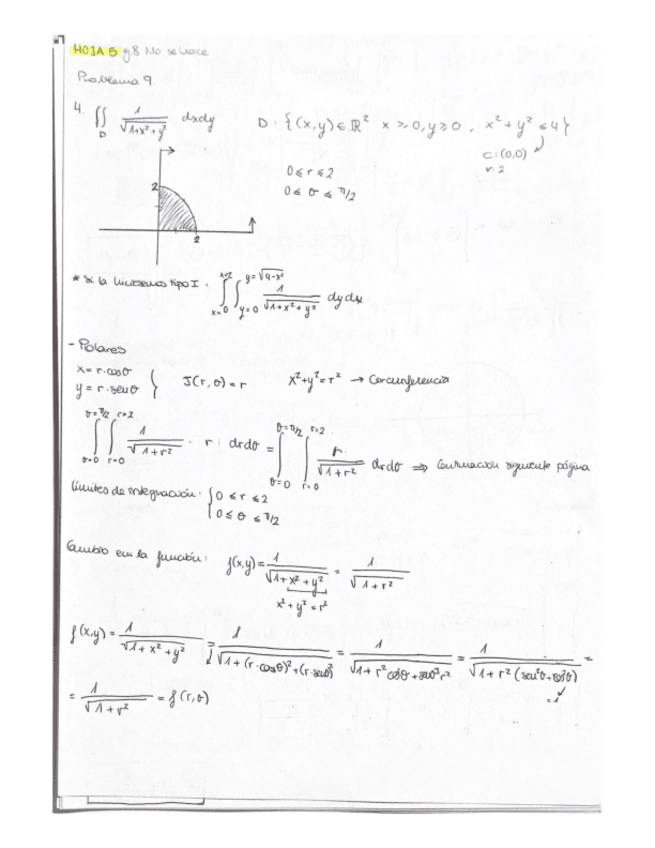 HOJA 5 y 8 No se hace
Problema 9.
4. ∬_D 1/√(1+x²+y²) dxdy D: {(x,y)∈ℝ² x ≥ 0, y ≥ 0, x² + y² ≤ 4}
C: (0,0)
r: 2
0 ≤ r ≤ 2
0 ≤ θ ≤ π/2
2
2
* Si la hiciésemos tipo I: ∫_{x=0}^{x=2} ∫_{y=0}^{y=√(4-x²)} 1/√(1+x²+y²) dy dx
- Polares
x = r·cosθ
y = r·senθ } J(r,θ) = r x²+y² = r² → Circunferencia
∫_{θ=0}^{θ=π/2} ∫_{r=0}^{r=2} 1/√(1+r²) · r drdθ = ∫_{θ=0}^{θ=π/2} ∫_{r=0}^{r=2} r/√(1+r²) drdθ ⇒ Continuación siguiente página
límites de integración: { 0 ≤ r ≤ 2
0 ≤ θ ≤ π/2
Cambio en la función: f(x,y) = 1/√(1+x²+y²) = 1/√(1+r²)
x² + y² = r²
f(x,y) = 1/√(1+x²+y²) = 1/√(1+(r·cosθ)²+(r·senθ)²) = 1/√(1+r²cos²θ+sen²r²) = 1/√(1+r²(sen²θ+cos²θ)) =
= 1
= 1/√(1+r²) = f(r,θ)